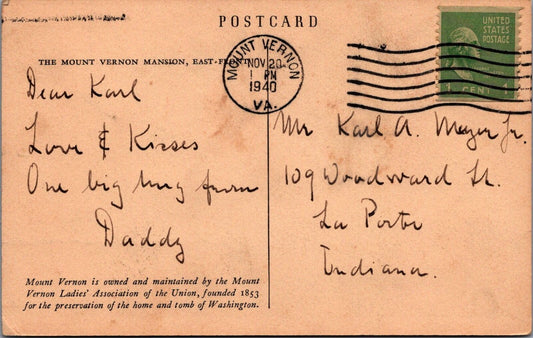 POSTCARD
THE MOUNT VERNON MANSION, EAST-FRONT
MOUNT VERNON
NOV 20
1 PM
1940
VA.
UNITED
STATES
POSTAGE
1 CENT 1
Dear Karl
Love & Kisses
One big hug from
Daddy
Mr Karl A. Meyer Jr.
109 Woodward St.
La Porte
Indiana.
Mount Vernon is owned and maintained by the Mount
Vernon Ladies' Association of the Union, founded 1853
for the preservation of the home and tomb of Washington.